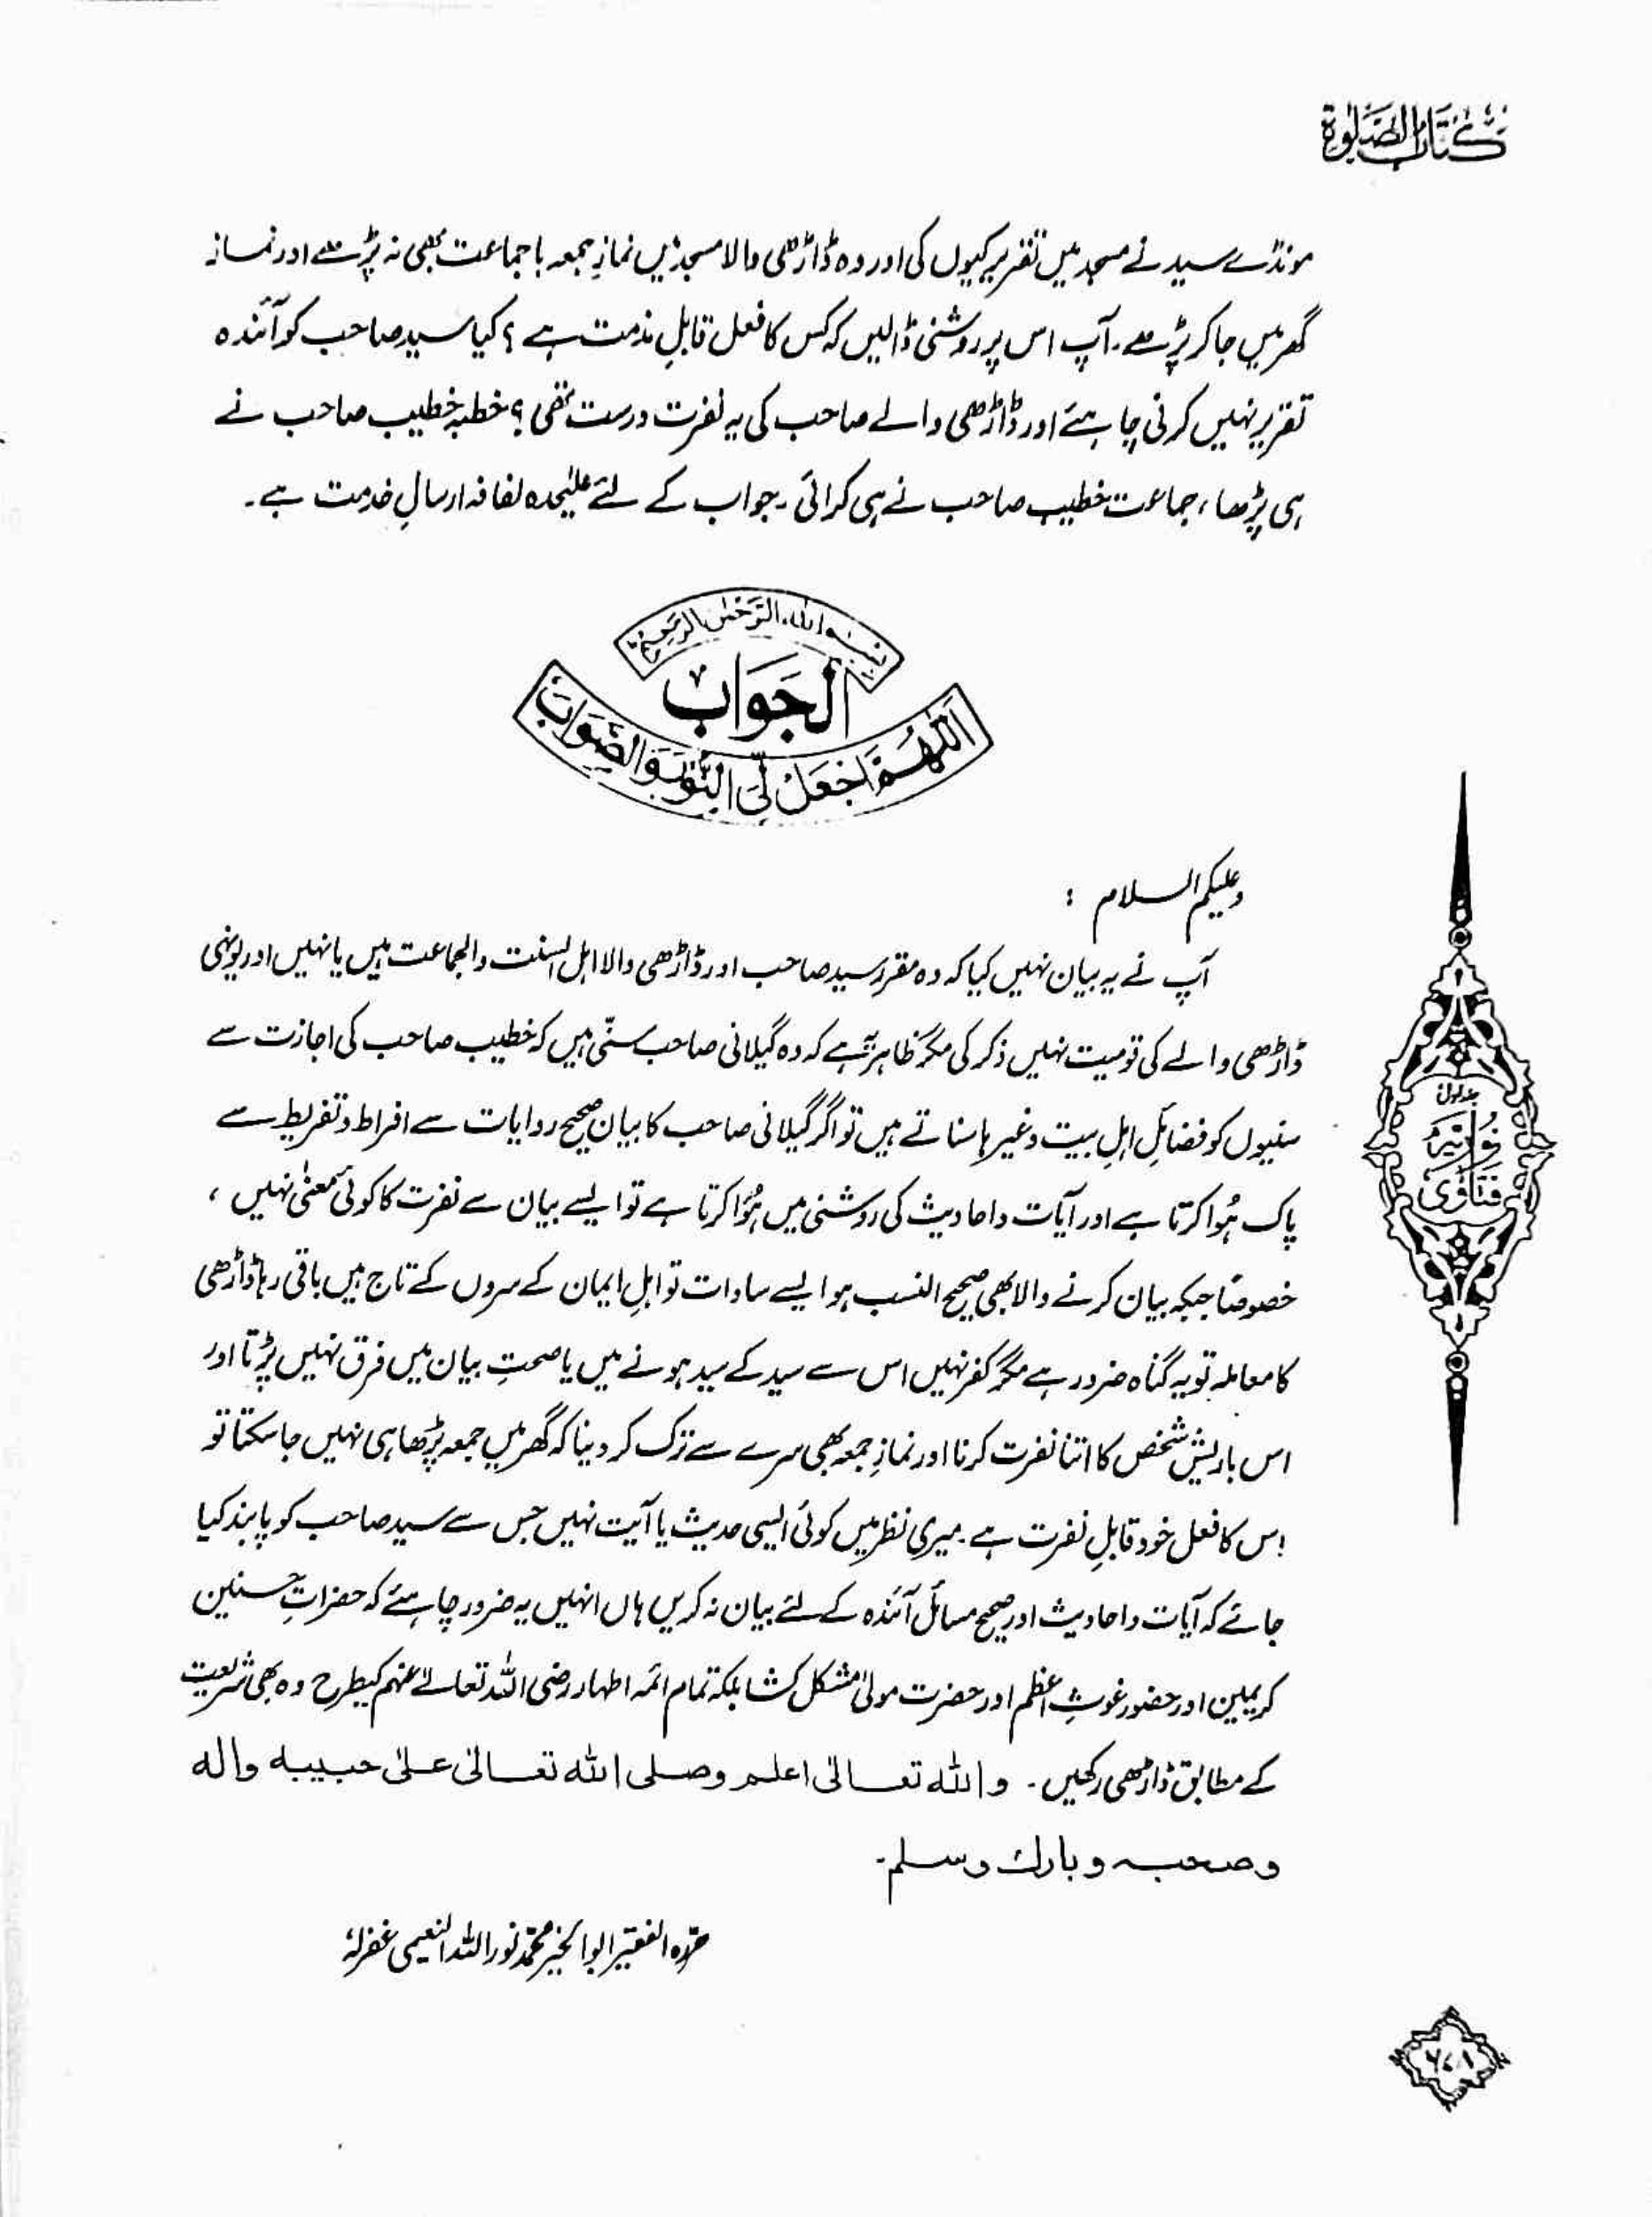 كتاب الصلوة
مونڈے سید نے مسجد میں تقریر کیوں کی اور وہ ڈاڑھی والا مسجد میں نمازِ جمعہ با جماعت بھی نہ پڑھے اور نماز
گھر میں جا کر پڑھے۔ آپ اس پر روشنی ڈالیں کہ کس کا فعل قابلِ مذمت ہے ؟ کیا سید صاحب کو آئندہ
تقریر نہیں کرنی چاہئے اور ڈاڑھی والے صاحب کی یہ نفرت درست تھی ؟ خطبہ خطیب صاحب نے
ہی پڑھا، جماعت خطیب صاحب نے ہی کرائی۔ جواب کے لئے علیٰحدہ لفافہ ارسالِ خدمت ہے۔
بسم الله الرحمن الرحيم
الجَوَاب
اَللّٰهُمَّ اجْعَلْ لِّي النُّوْرَ وَالصَّوَابَ
وعلیکم السلام :
آپ نے یہ بیان نہیں کیا کہ وہ مقرر سید صاحب اور ڈاڑھی والا اہل السنت والجماعت ہیں یا نہیں اور یونہی
ڈاڑھی والے کی قومیت نہیں ذکر کی مگر ظاہر یہ ہے کہ وہ گیلانی صاحب سنّی ہیں کہ خطیب صاحب کی اجازت سے
سنیوں کو فضائلِ اہلِ بیت وغیرہا سناتے ہیں تو اگر گیلانی صاحب کا بیان صحیح روایات سے افراط و تفریط سے
پاک ہُوا کرتا ہے اور آیات و احادیث کی روشنی میں ہُوا کرتا ہے تو ایسے بیان سے نفرت کا کوئی معنیٰ نہیں ،
خصوصًا جبکہ بیان کرنے والا بھی صحیح النسب ہو ایسے سادات تو اہلِ ایمان کے سروں کے تاج ہیں باقی رہا ڈاڑھی
کا معاملہ تو یہ گناہ ضرور ہے مگر کفر نہیں اس سے سید کے سید ہونے میں یا صحتِ بیان میں فرق نہیں پڑتا اور
اس باریش شخص کا اتنا نفرت کرنا اور نمازِ جمعہ بھی سرے سے ترک کر دینا کہ گھر میں جمعہ پڑھا ہی نہیں جا سکتا تو
اس کا فعل خود قابلِ نفرت ہے۔ میری نظر میں کوئی ایسی حدیث یا آیت نہیں جس سے سید صاحب کو پابند کیا
جائے کہ آیات و احادیث اور صحیح مسائل آئندہ کے لئے بیان نہ کریں ہاں انہیں یہ ضرور چاہئے کہ حضراتِ حسنین
کریمین اور حضور غوثِ اعظم اور حضرت مولیٰ مشکل کشا بلکہ تمام ائمہ اطہار رضی اللہ تعالےٰ عنہم کیطرح وہ بھی شریعت
کے مطابق ڈاڑھی رکھیں۔ والله تعالیٰ اعلم وصلی الله تعالیٰ علیٰ حبیبه واٰله
وصحبه وبارك وسلم۔
حرّرہ الفقیر ابو الخیر محمّد نور اللہ النعیمی غفرلہٗ
جلد اول
نُورِیَّہ
فتاوٰی
۶۷۱